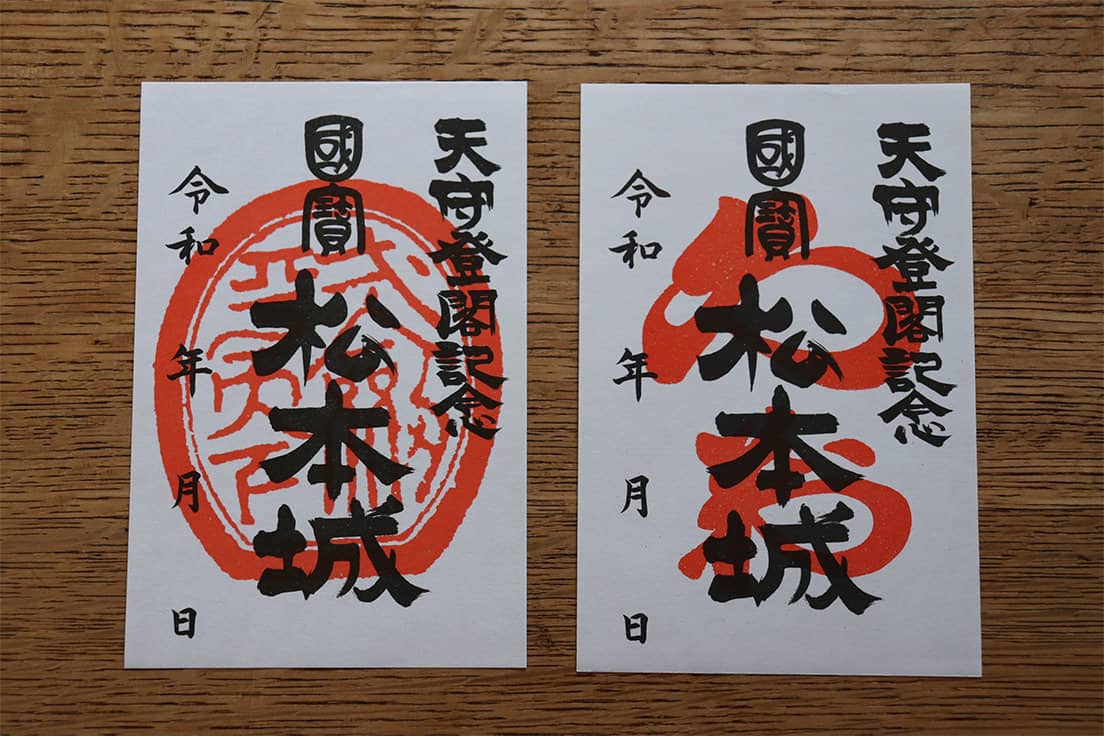 天守登閣記念
國寶
松本城
令和 年 月 日
天守登閣記念
國寶
松本城
令和 年 月 日